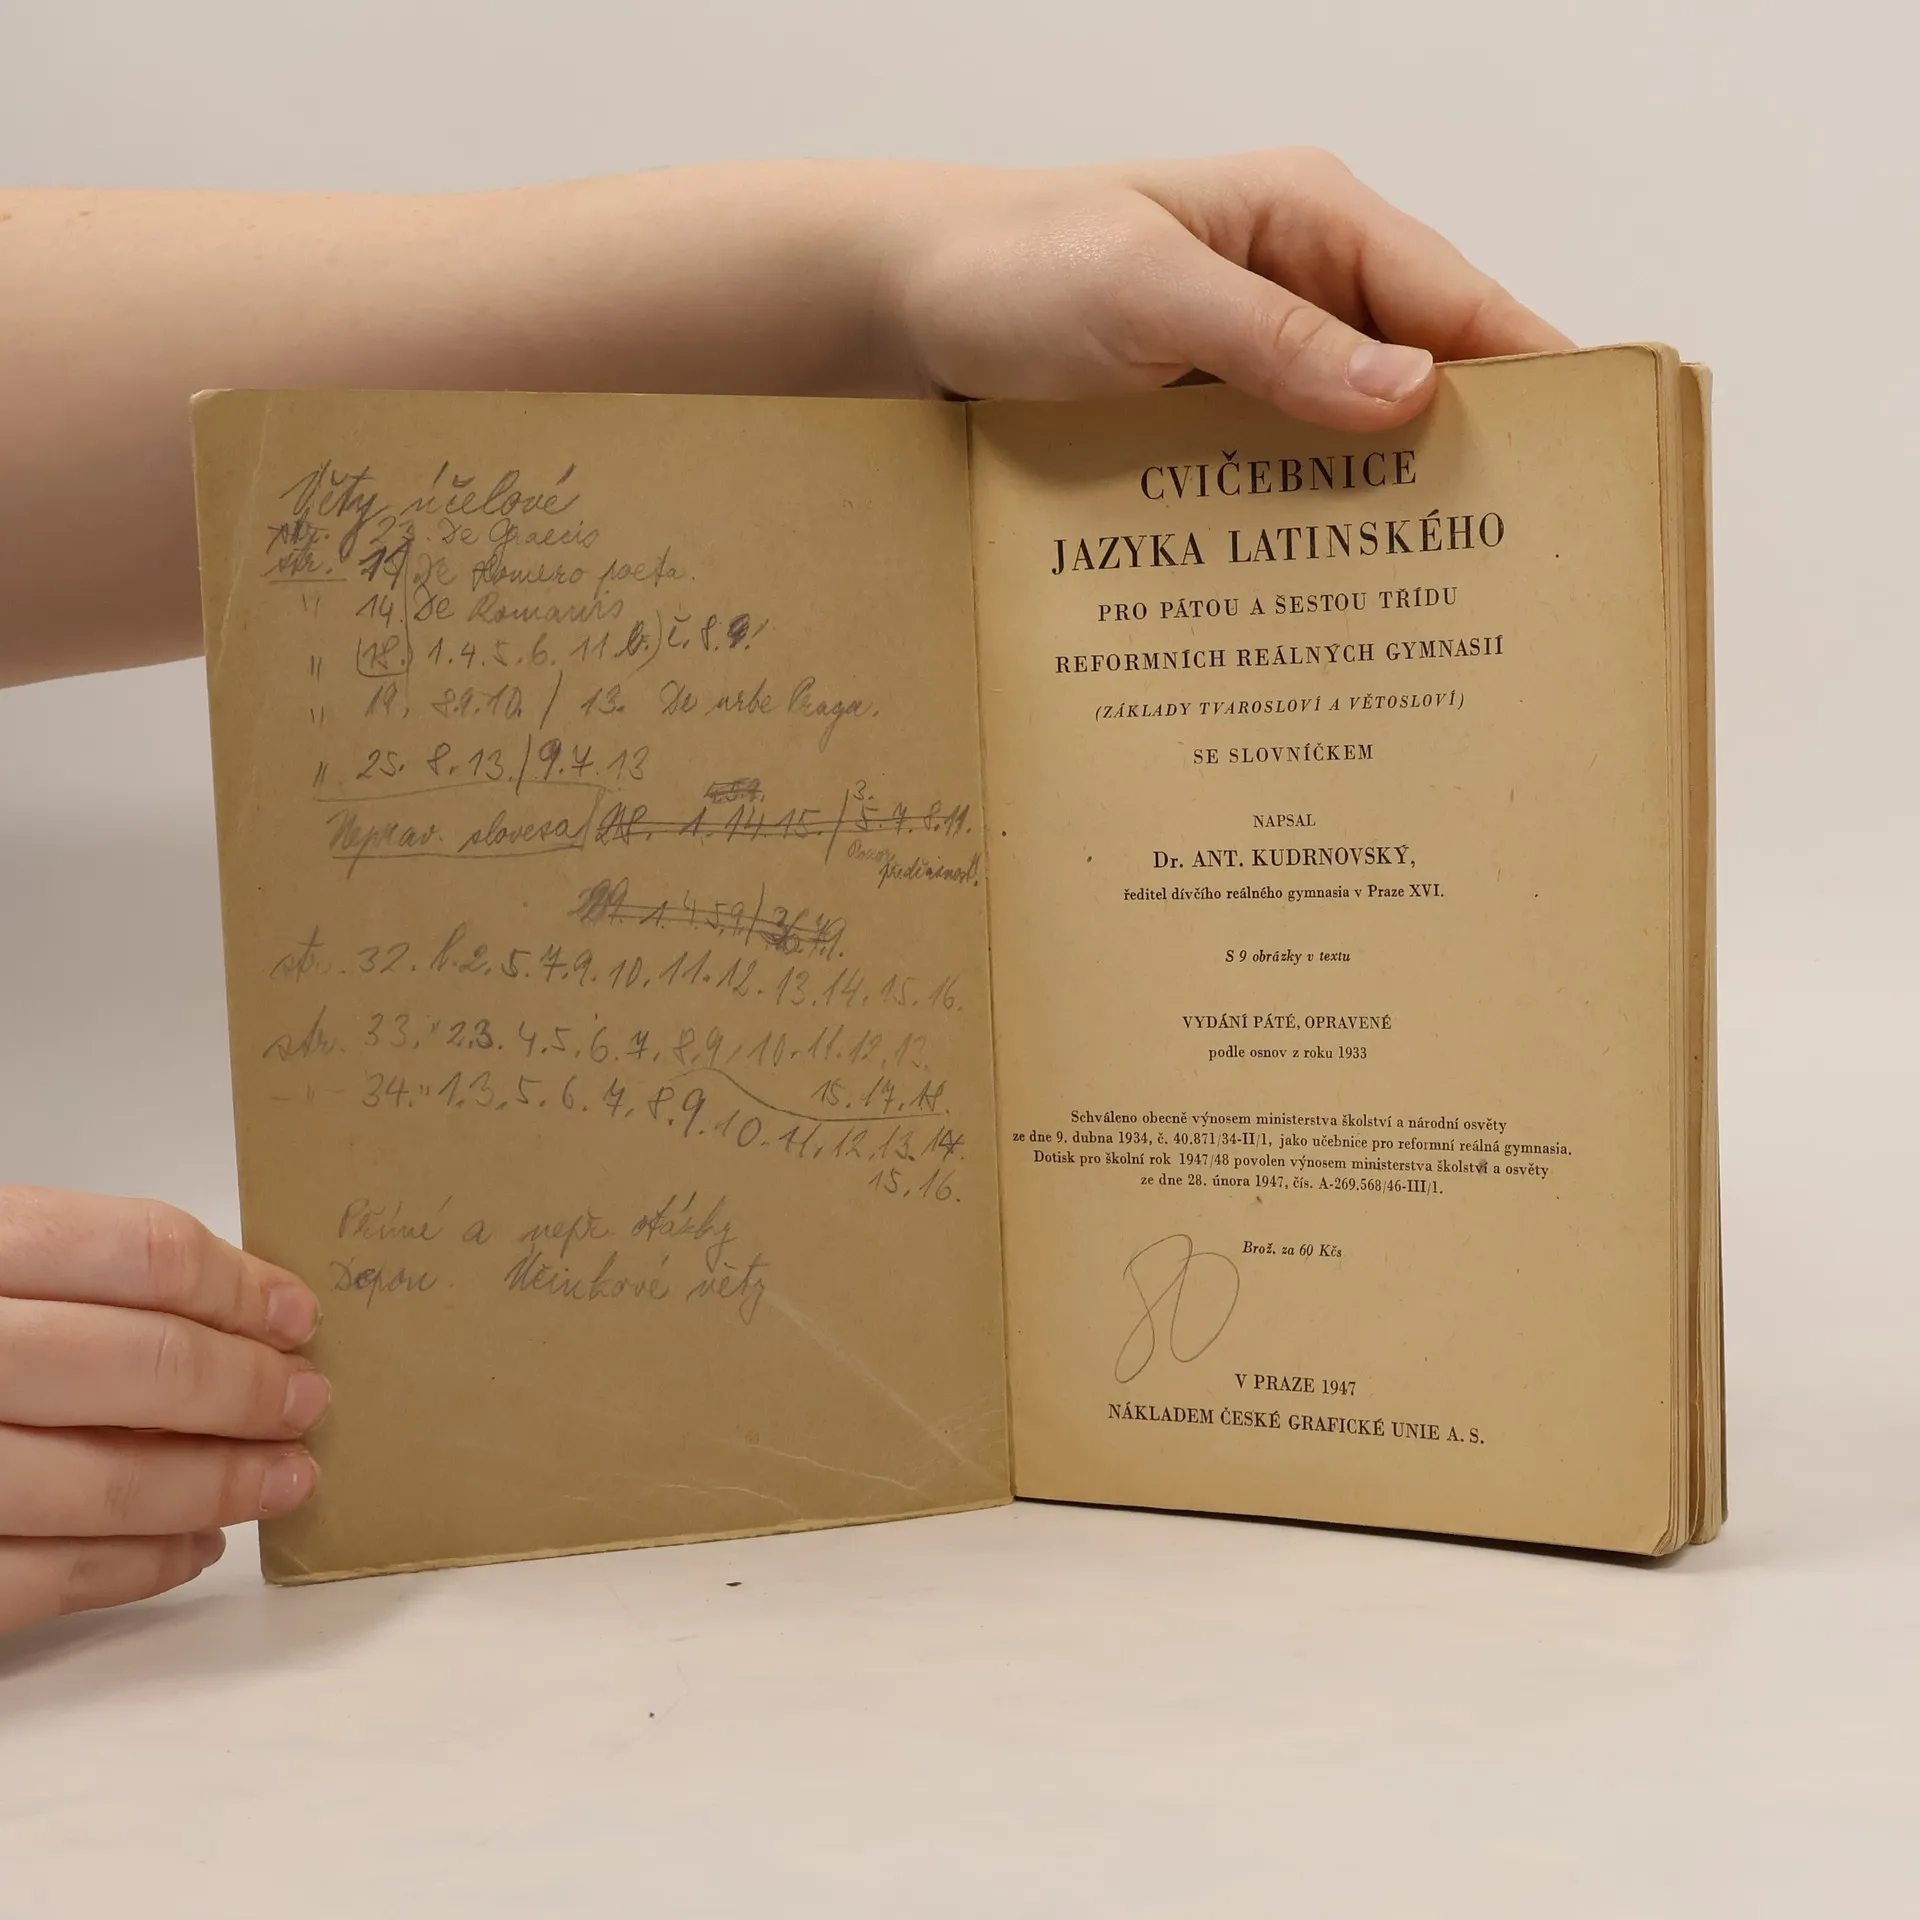 Věty účelové
str. 23. De Graecis
str. De Homero poeta.
" 14. De Romanis
" (18.) 1. 4. 5. 6. 11 b.) č. 8. 9.
" 19. 8. 9. 10. / 13. De urbe Praga.
" 25. 8. 13. / 9. 7. 13
4.5.9. 3.
Neprav. slovesa 28. 1. 14. 15. / 5. 7. 8. 11.
Pozor
předčasnost!
29. 1. 4. 5. 9. /
str. 32. b. 2. 5. 7. 9. 10. 11. 12. 13. 14. 15. 16.
str. 33. " 2. 3. 4. 5. 6. 7. 8. 9. 10. 11. 12. 13.
15. 17. 18.
" 34. " 1. 3. 5. 6. 7. 8. 9. 10. 11. 12. 13. 14.
15. 16.
Přímé a nepř. otázky
Depon. Účinkové věty
CVIČEBNICE
JAZYKA LATINSKÉHO
PRO PÁTOU A ŠESTOU TŘÍDU
REFORMNÍCH REÁLNÝCH GYMNASIÍ
(ZÁKLADY TVAROSLOVÍ A VĚTOSLOVÍ)
SE SLOVNÍČKEM
NAPSAL
Dr. ANT. KUDRNOVSKÝ,
ředitel dívčího reálného gymnasia v Praze XVI.
S 9 obrázky v textu
VYDÁNÍ PÁTÉ, OPRAVENÉ
podle osnov z roku 1933
Schváleno obecně výnosem ministerstva školství a národní osvěty
ze dne 9. dubna 1934, č. 40.871/34-II/1, jako učebnice pro reformní reálná gymnasia.
Dotisk pro školní rok 1947/48 povolen výnosem ministerstva školství a osvěty
ze dne 28. února 1947, čís. A-269.568/46-III/1.
Brož. za 60 Kčs
V PRAZE 1947
NÁKLADEM ČESKÉ GRAFICKÉ UNIE A. S.